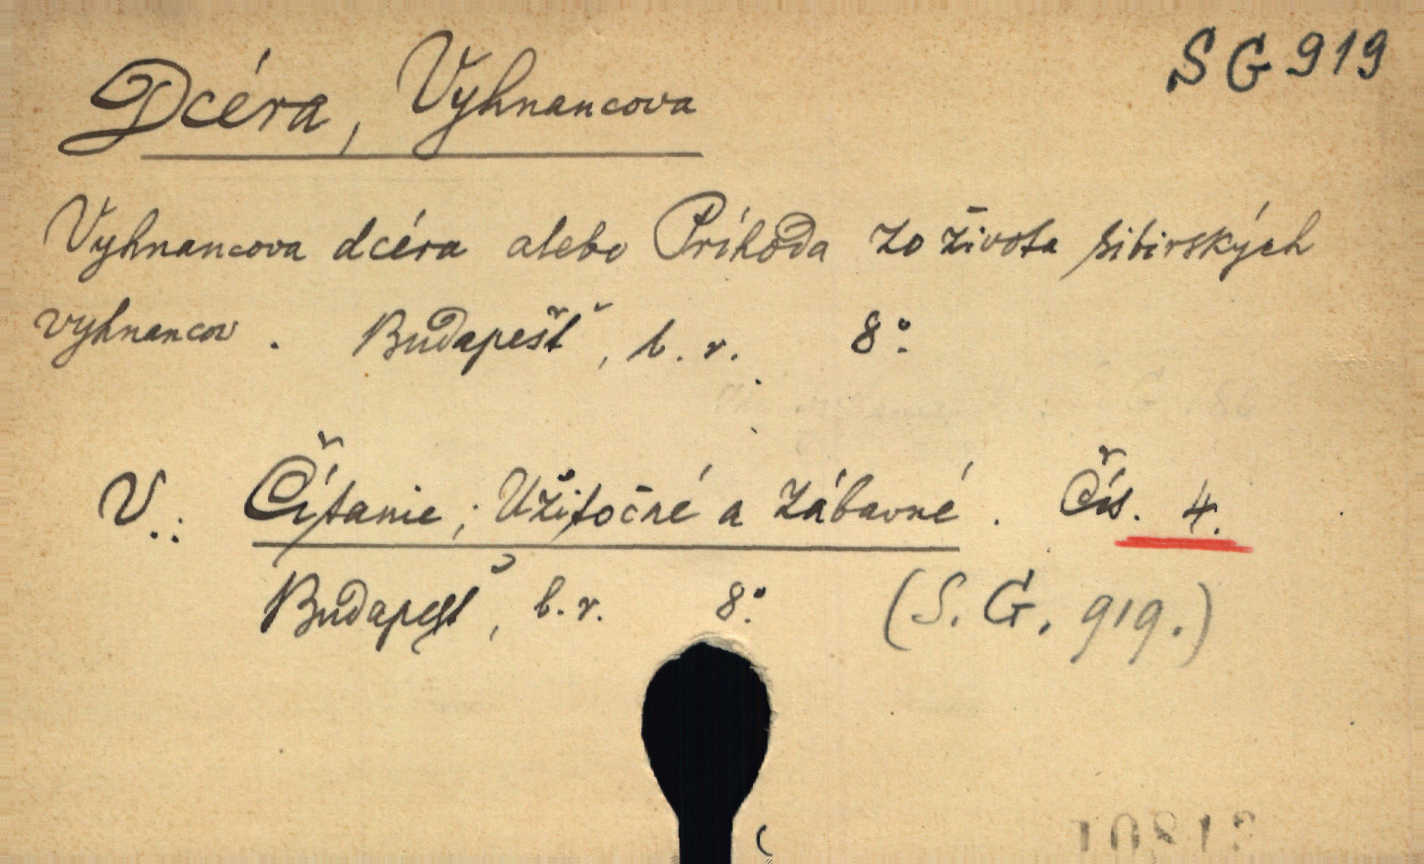 SG 919
Dcéra, Vyhnancova
Vyhnancova dcéra alebo Príhoda zo života sibirských
vyhnancov. Budapešť, b. r. 8°.
V.: Čítanie; Užitočné a zábavné. Čís. 4.
Budapešť, b. r. 8°. (S. G. 919.)